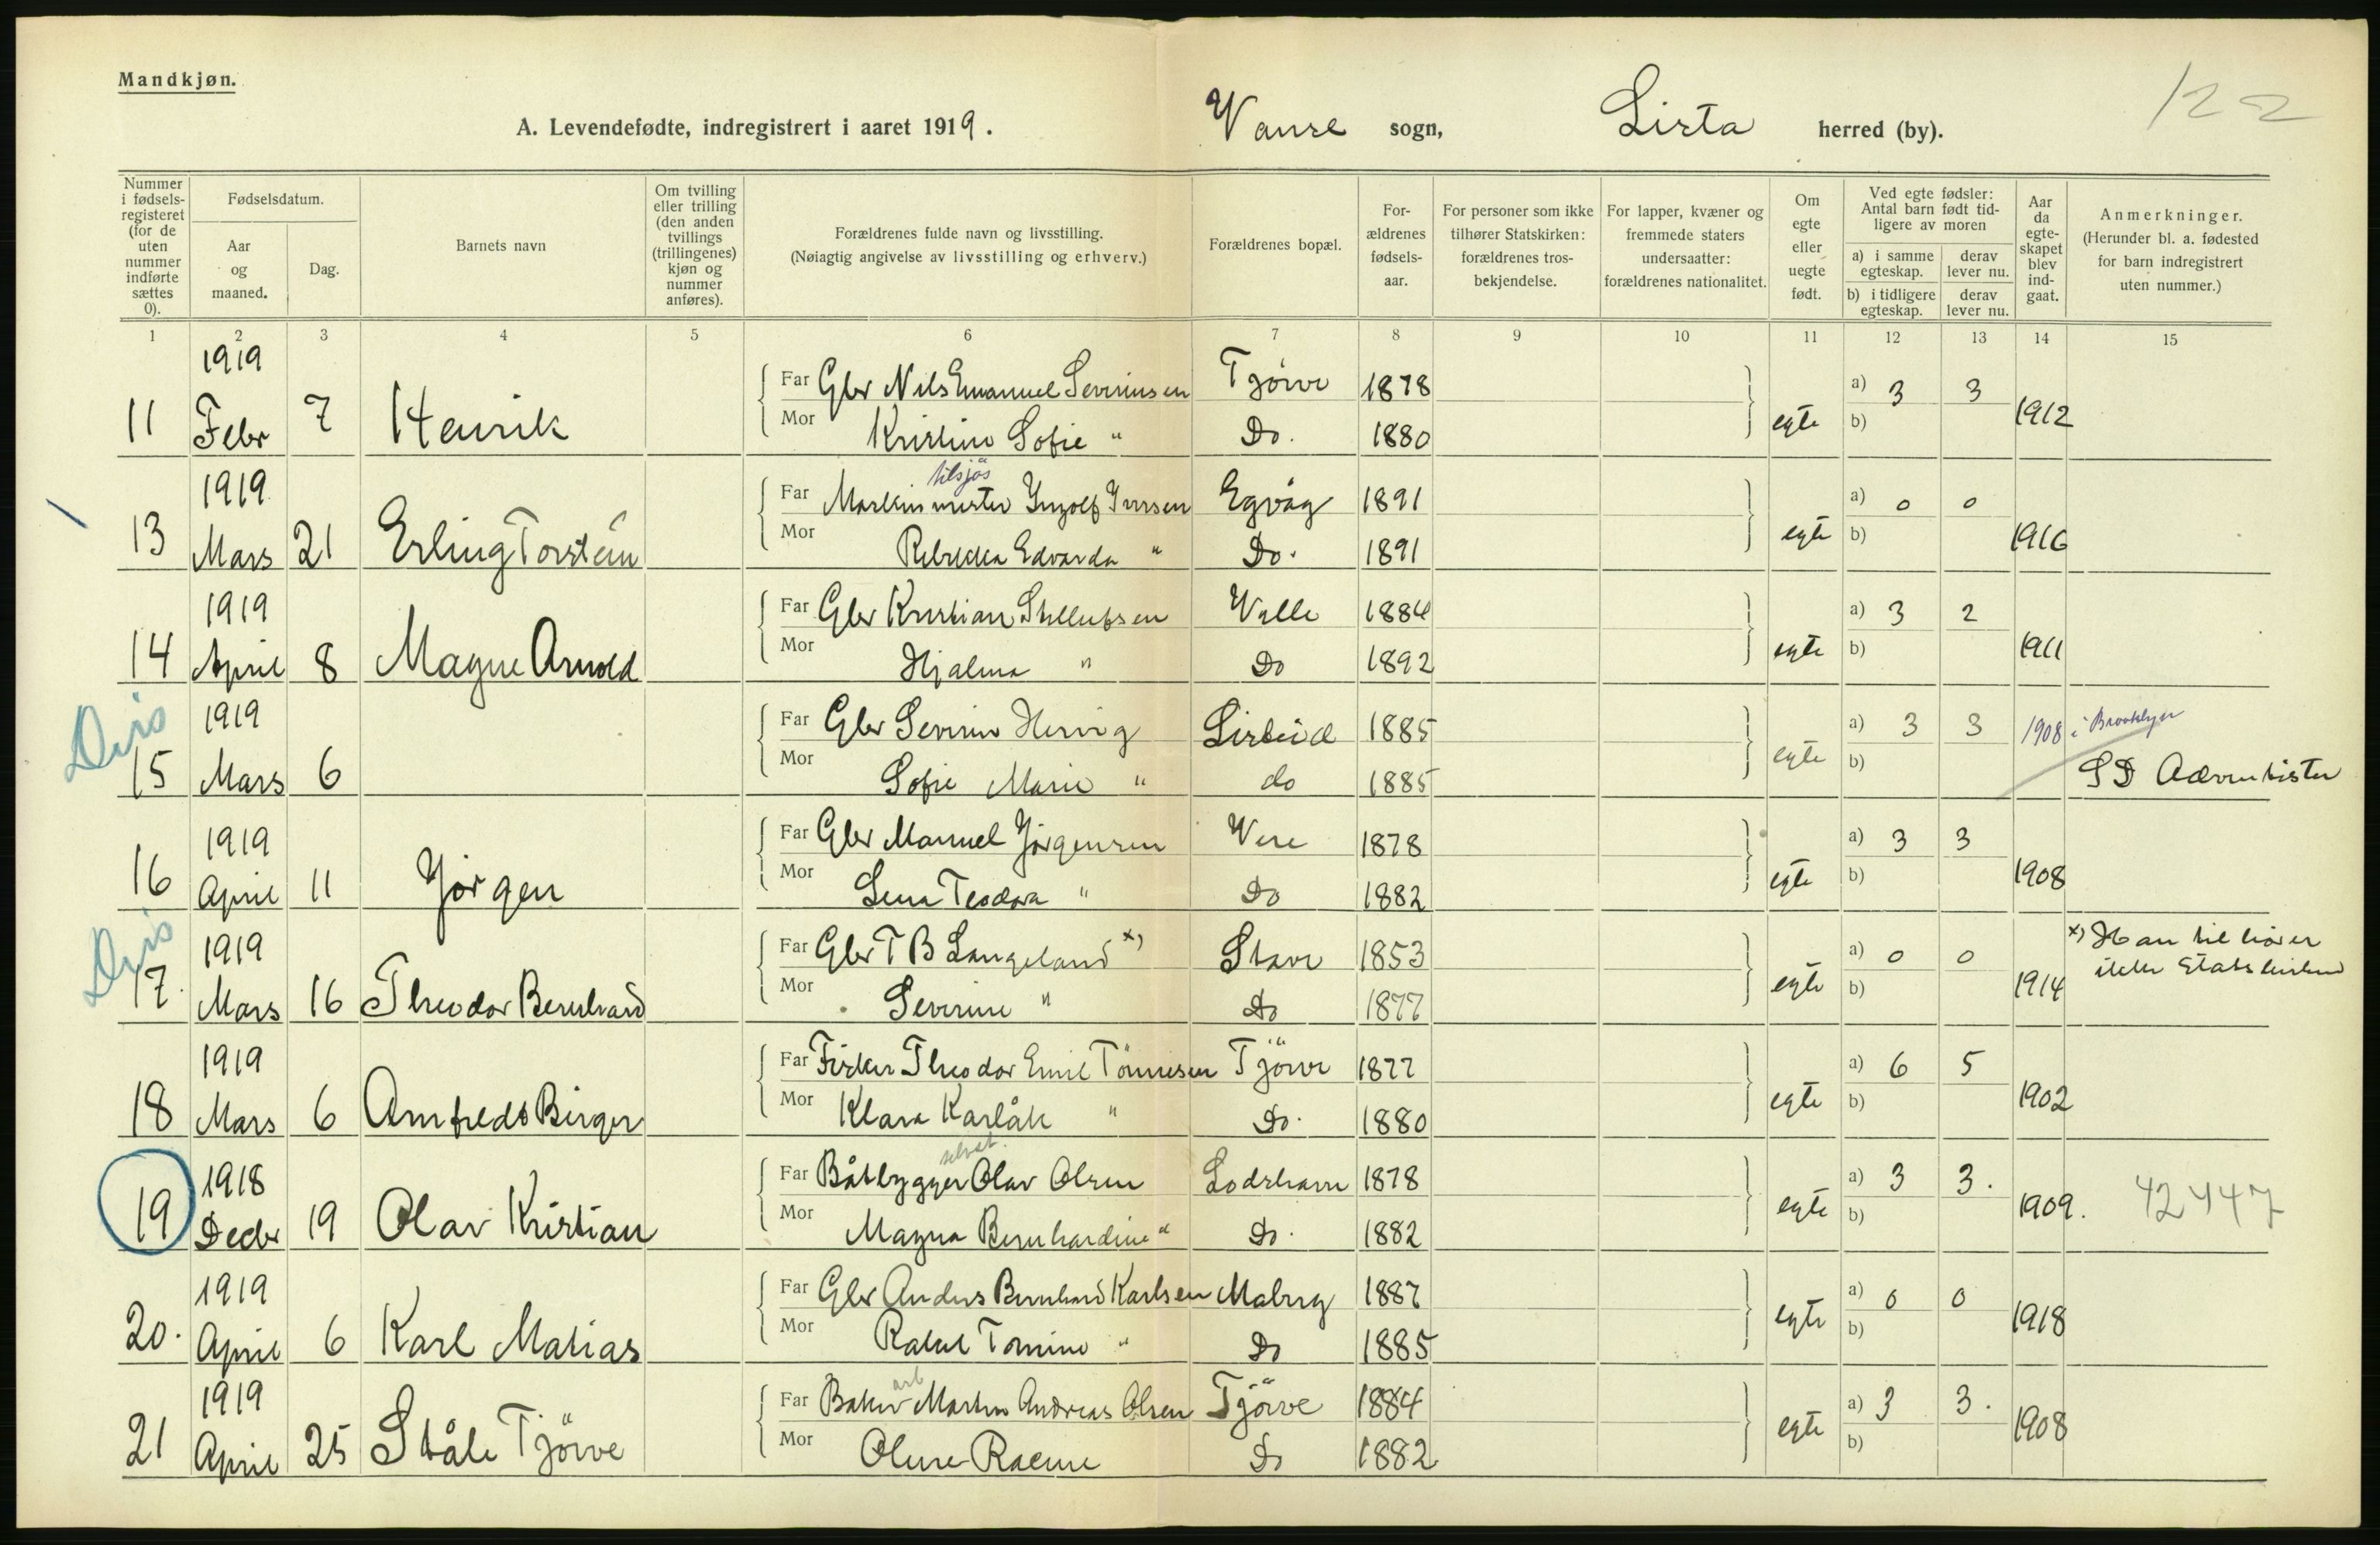 Mandkjøn.
122
A. Levendefødte, indregistrert i aaret 1919.
Vanse sogn, Lista herred (by).
Nummer i fødsels-registeret (for de uten nummer indførte sættes 0).
Fødselsdatum.
Aar og maaned.
Dag.
Barnets navn
Om tvilling eller trilling (den anden tvillings (trillingenes) kjøn og nummer anføres).
Forældrenes fulde navn og livsstilling.
(Nøiagtig angivelse av livsstilling og erhverv.)
Forældrenes bopæl.
For-ældrenes fødsels-aar.
For personer som ikke tilhører Statskirken: forældrenes tros-bekjendelse.
For lapper, kvæner og fremmede staters undersaatter: forældrenes nationalitet.
Om egte eller uegte født.
Ved egte fødsler: Antal barn født tid-ligere av moren
a) i samme egteskap.
derav lever nu.
b) i tidligere egteskap.
derav lever nu.
Aar da egte-skapet blev ind-gaat.
Anmerkninger.
(Herunder bl. a. fødested for barn indregistrert uten nummer.)
1 2 3 4 5 6 7 8 9 10 11 12 13 14 15
1919
Far Gbr Nils Emanuel Severinsen Tjörve 1878 a) 3 3
11 Febr 7 Henrik Mor Kristine Sofie " Do. 1880 egte b) 1912
tilsjøs
1919 Far Maskinmester Ingolf Iversen Egvåg 1891 a) 0 0
13 Mars 21 Erling Torstein Mor Rebekka Edvarda " Do. 1891 egte b) 1916
1919 Far Gbr Kristian Stellufsen Velle 1884 a) 3 2
14 April 8 Magne Arnold Mor Hjalma " Do 1892 egte b) 1911
Diss
1919 Far Gbr Severin Hervig Listeid 1885 a) 3 3 1908 i Brooklyn
15 Mars 6 Mor Sofie Marie " do 1885 egte b) SD Adventister
1919 Far Gbr Manuel Jörgensen Vere 1878 a) 3 3
16 April 11 Jörgen Mor Lena Teodora " Do 1882 egte b) 1908
Diss
1919 Far Gbr T B Langeland x) Stave 1853 a) 0 0 x) Han tilhører ikke Statskirken
17. Mars 16 Theodor Bernhard Mor Severine " Do 1877 egte b) 1914
1919 Far Fisker Theodor Emil Tönnesen Tjörve 1877 a) 6 5
18 Mars 6 Arnfeldt Birger Mor Klara " Do. 1880 egte b) 1902
selvst.
1918 Far Båtbygger Olav Olsen Lodshavn 1878 a) 3 3.
19 Decbr 19 Olav Kristian Mor Magna Bernhardine " Do. 1882 egte b) 1909. 42447
1919 Far Gbr Anders Bernhard Karlsen Maberg 1887 a) 0 0
20. April 6 Karl Matias Mor Rakel Tomine " Do 1885 egte b) 1918
arb
1919 Far Baker Martin Andreas Olsen Tjörve 1884 a) 3 3.
21 April 25 Ståle Tjörve Mor Do 1882 egte b) 1908